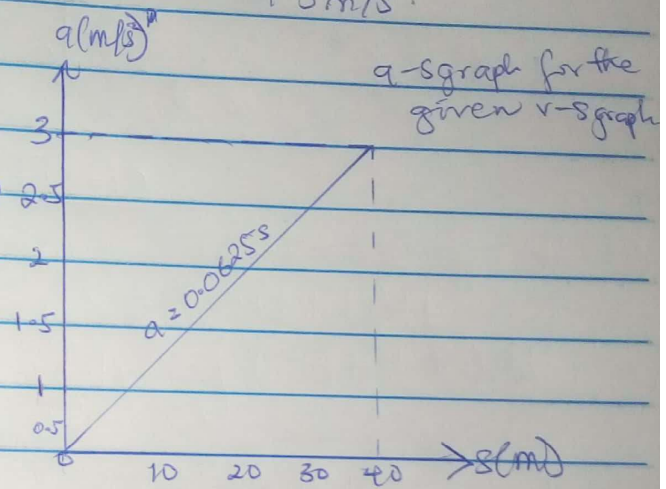 a(m/s²)
a-s graph for the
given v-s graph
3
2.5
2
1.5
1
0.5
0
a = 0.0625s
10 20 30 40
s(m)